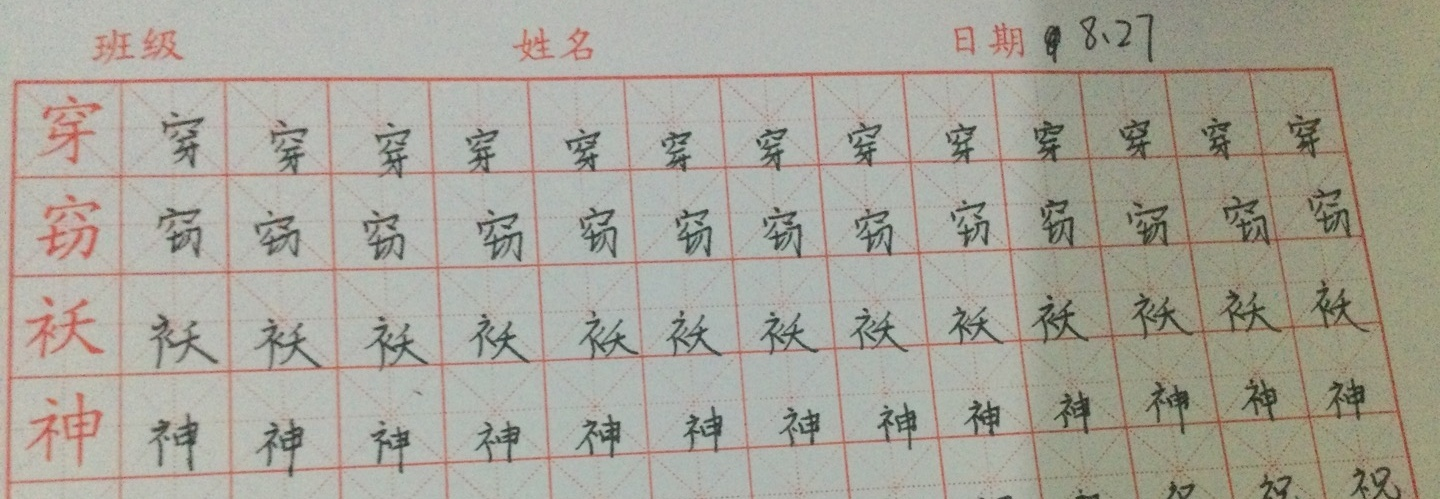 班级 姓名 日期 8、27
穿 穿 穿 穿 穿 穿 穿 穿 穿 穿 穿 穿 穿 穿
窃 窃 窃 窃 窃 窃 窃 窃 窃 窃 窃 窃 窃 窃
袄 袄 袄 袄 袄 袄 袄 袄 袄 袄 袄 袄 袄 袄
神 神 神 神 神 神 神 神 神 神 神 神 神 神
祝